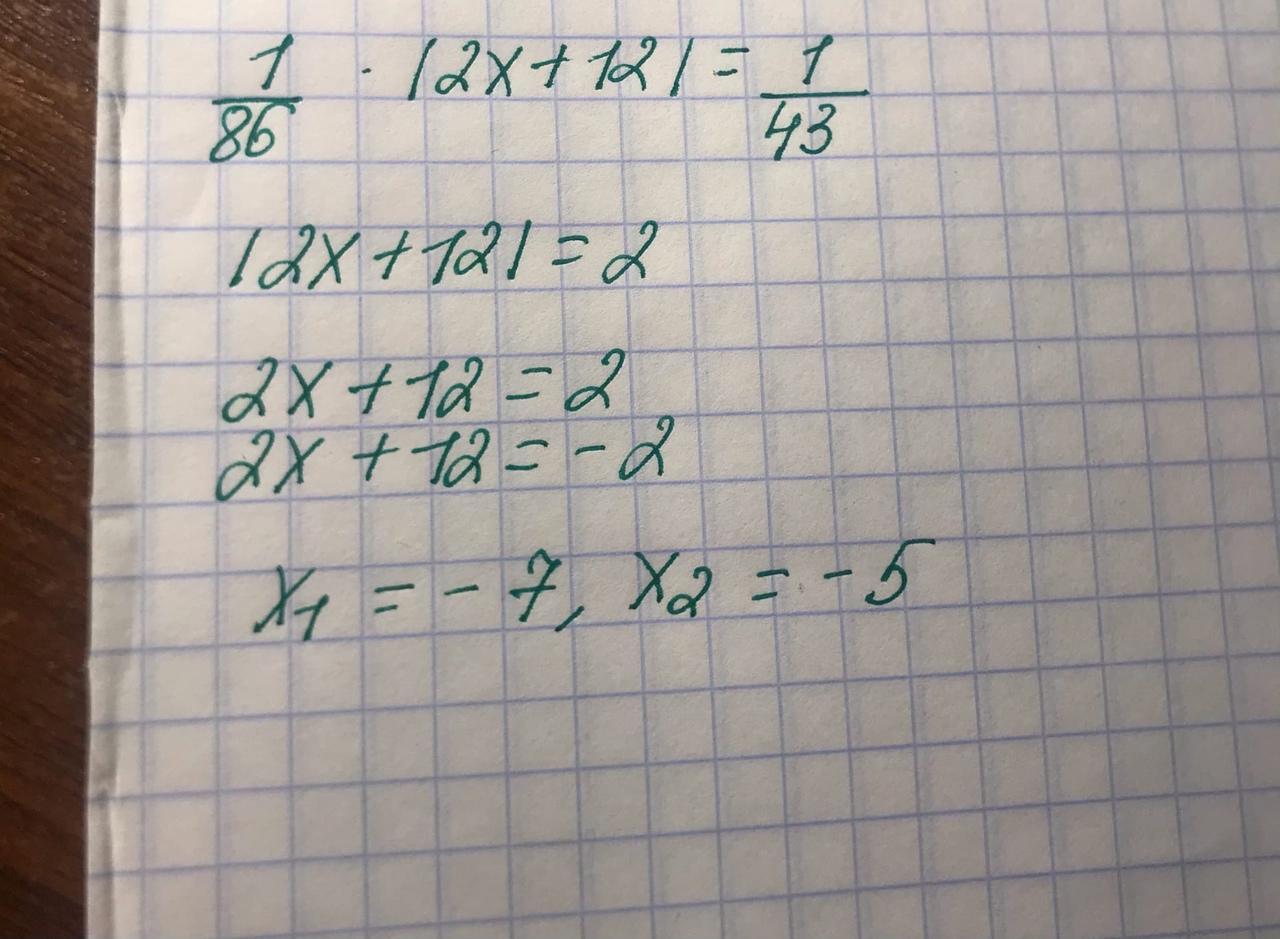 1/86 · |2x+12| = 1/43
|2x+12| = 2
2x+12 = 2
2x+12 = -2
x₁ = -7, x₂ = -5